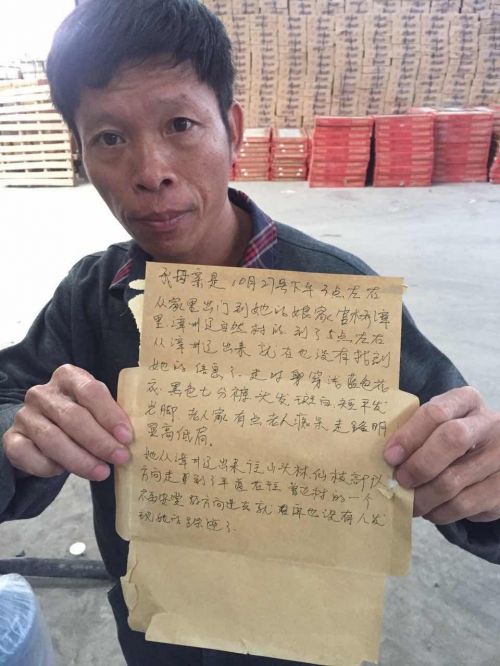 我母亲是10月27号下午3点左右
从家里出门到她的娘家官林漳
里漳州辽自然村的 到了5点左右
从漳州辽出来 就在也没有找到
她的信息了 走时身穿浅蓝色花
衣 黑色七分裤 头发 斑白 短平发
光脚 老人家有点老人痴呆 走路明
显高低肩
她从漳州辽出来往山头林
方向走 到了 村的一个
方向进去就在也没有人发
现她的踪迹了